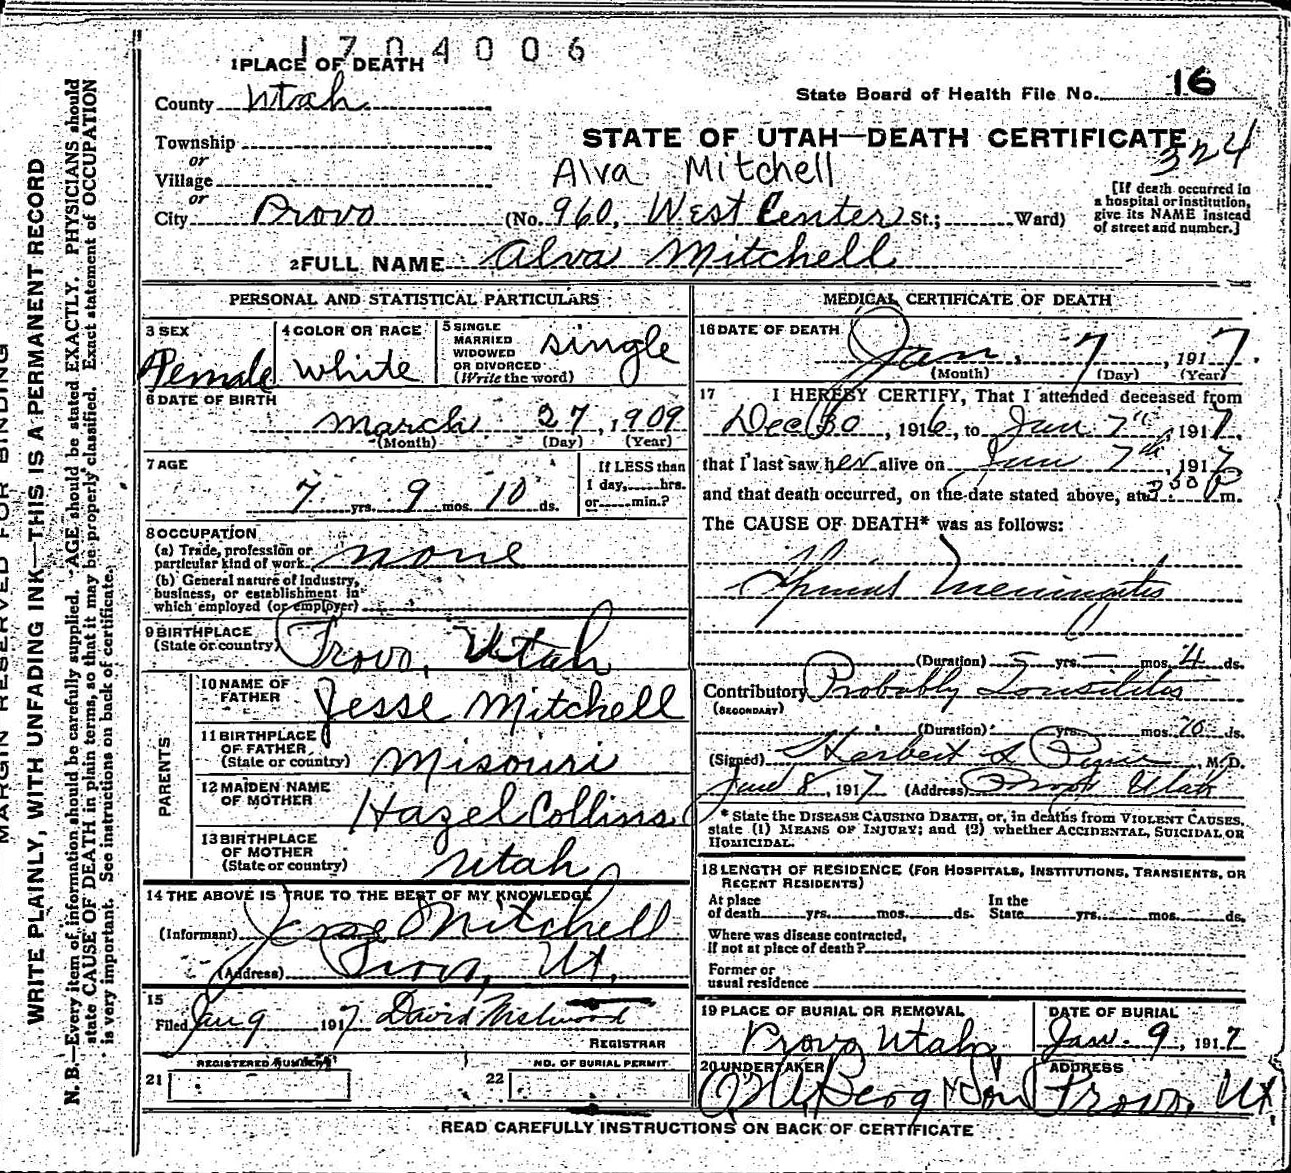 1704006
1 PLACE OF DEATH
County Utah
State Board of Health File No. 16
Township
or
Village
or
City Provo
STATE OF UTAH—DEATH CERTIFICATE
324
Alva Mitchell
(No. 960, West Center St.; Ward)
[If death occurred in
a hospital or institution,
give its NAME instead
of street and number.]
2 FULL NAME Alva Mitchell
PERSONAL AND STATISTICAL PARTICULARS
3 SEX
Female
4 COLOR OR RACE
white
5 SINGLE
MARRIED
WIDOWED
OR DIVORCED
(Write the word)
single
6 DATE OF BIRTH
March 27, 1909
(Month) (Day) (Year)
7 AGE
7 yrs. 9 mos. 10 ds.
If LESS than
1 day, hrs.
or min.?
8 OCCUPATION
(a) Trade, profession or
particular kind of work none
(b) General nature of industry,
business, or establishment in
which employed (or employer)
9 BIRTHPLACE
(State or country) Provo, Utah
PARENTS
10 NAME OF
FATHER Jesse Mitchell
11 BIRTHPLACE
OF FATHER
(State or country) Misouri
12 MAIDEN NAME
OF MOTHER Hazel Collins
13 BIRTHPLACE
OF MOTHER
(State or country) Utah
14 THE ABOVE IS TRUE TO THE BEST OF MY KNOWLEDGE
(Informant) Jesse Mitchell
(Address) Provo, Ut.
15
Filed Jan 9 1917 David
REGISTRAR
REGISTERED NUMBER
21
NO. OF BURIAL PERMIT
22
MEDICAL CERTIFICATE OF DEATH
16 DATE OF DEATH
Jan. 7, 1917.
(Month) (Day) (Year)
17 I HEREBY CERTIFY, That I attended deceased from
Dec 30, 1916, to Jan 7th, 1917,
that I last saw her alive on Jan 7th, 1917
and that death occurred, on the date stated above, at 3:50 P m.
The CAUSE OF DEATH* was as follows:
Spinal Meningitis
(Duration) – yrs. – mos. 4 ds.
Contributory Probably Tonsilitis
(SECONDARY)
(Duration) yrs. mos. 10 ds.
(Signed) Herbert S. Pyne, M.D.
Jan 8, 1917 (Address) Provo Utah
* State the DISEASE CAUSING DEATH, or, in deaths from VIOLENT CAUSES,
state (1) MEANS OF INJURY; and (2) whether ACCIDENTAL, SUICIDAL OR
HOMICIDAL.
18 LENGTH OF RESIDENCE (FOR HOSPITALS, INSTITUTIONS, TRANSIENTS, OR
RECENT RESIDENTS)
At place
of death yrs. mos. ds.
In the
State yrs. mos. ds.
Where was disease contracted,
if not at place of death?
Former or
usual residence
19 PLACE OF BURIAL OR REMOVAL
Provo Utah
DATE OF BURIAL
Jan. 9, 1917
20 UNDERTAKER
Berg & Son
ADDRESS
Provo, Ut
READ CAREFULLY INSTRUCTIONS ON BACK OF CERTIFICATE
MARGIN RESERVED FOR BINDING
WRITE PLAINLY, WITH UNFADING INK—THIS IS A PERMANENT RECORD
N. B.—Every item of information should be carefully supplied. AGE should be stated EXACTLY. PHYSICIANS should
state CAUSE OF DEATH in plain terms, so that it may be properly classified. Exact statement of OCCUPATION
is very important. See instructions on back of certificate.